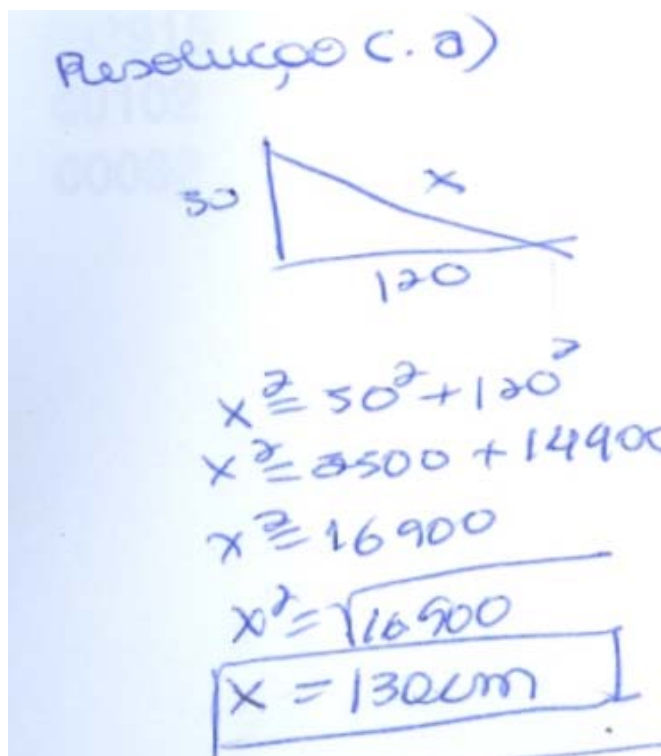 Resolução (. a)
50
x
120
x² = 50² + 120²
x² = 2500 + 14900
x² = 16900
x² = √16900
x = 130cm